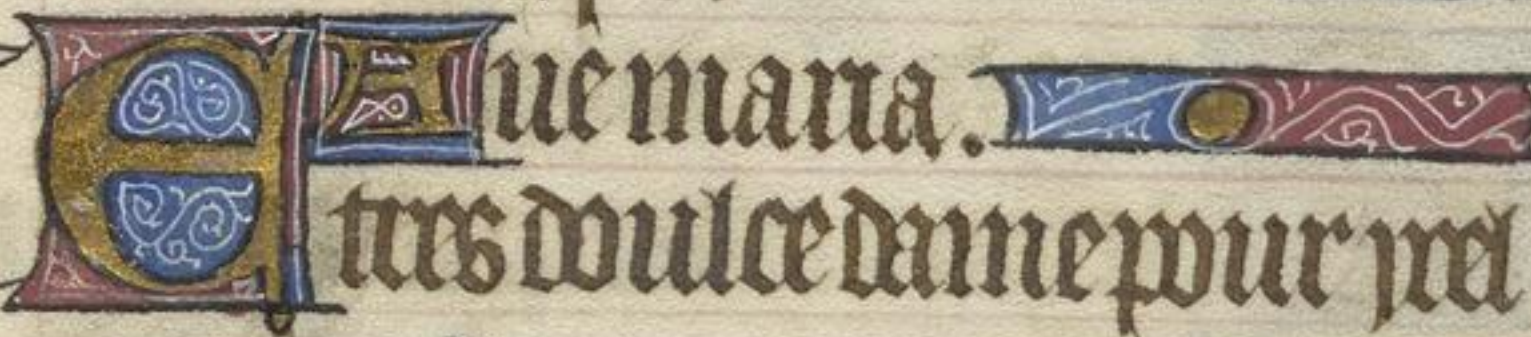 Aue maria.
E tres doulce dame pour ycel